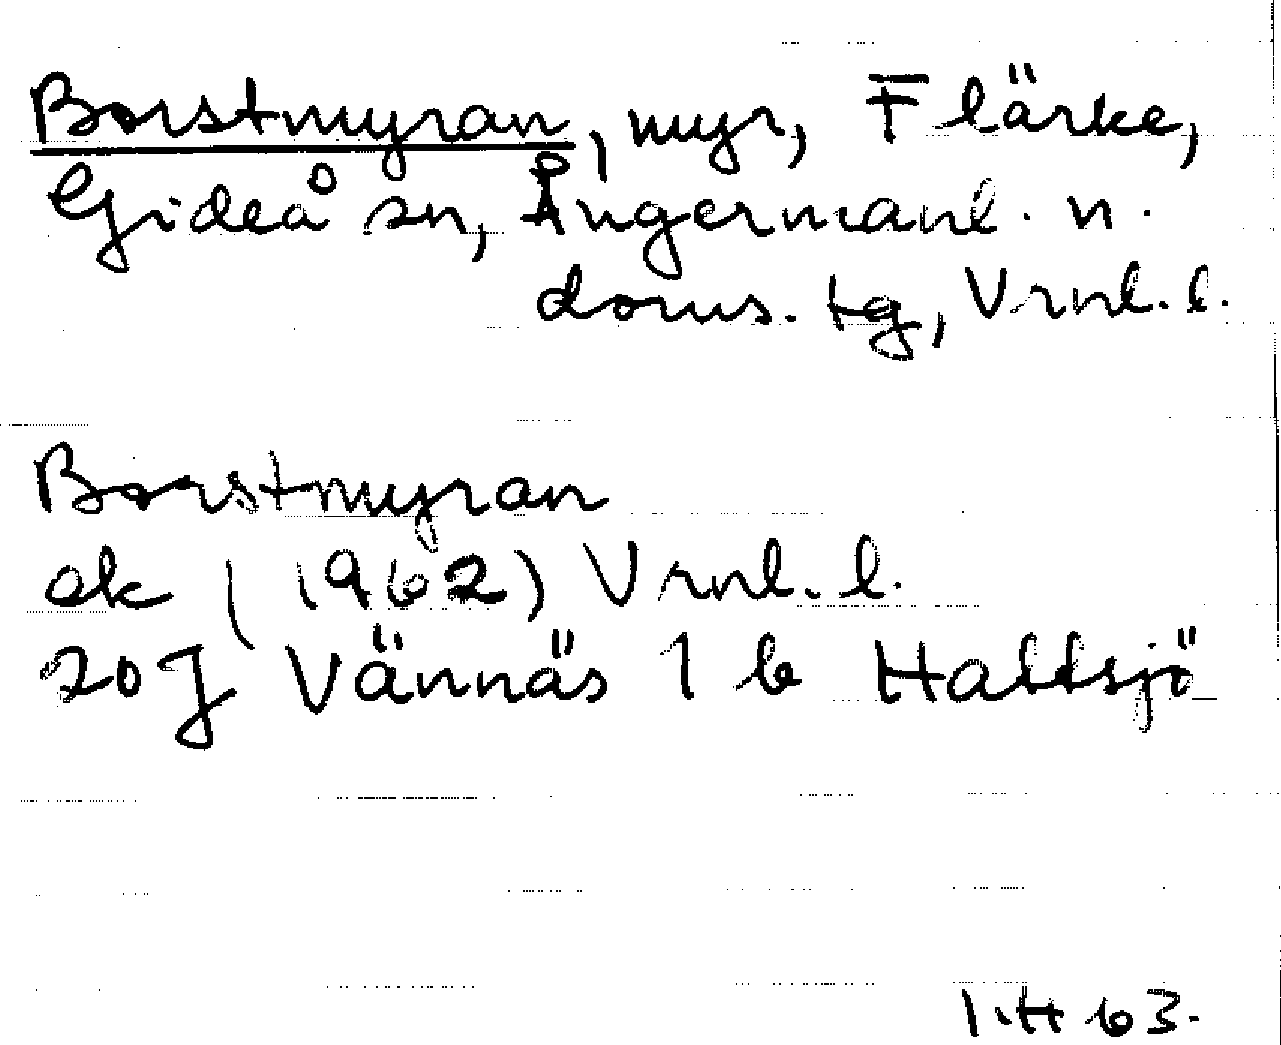 Borstmyran, myr, Flärke,
Gideå sn, Ångermanl. n.
doms. tg, Vrnl. l.
Borstmyran
ek (1962) Vrnl. l.
20J Vännäs 1 b Hallsjö
I.H 63.